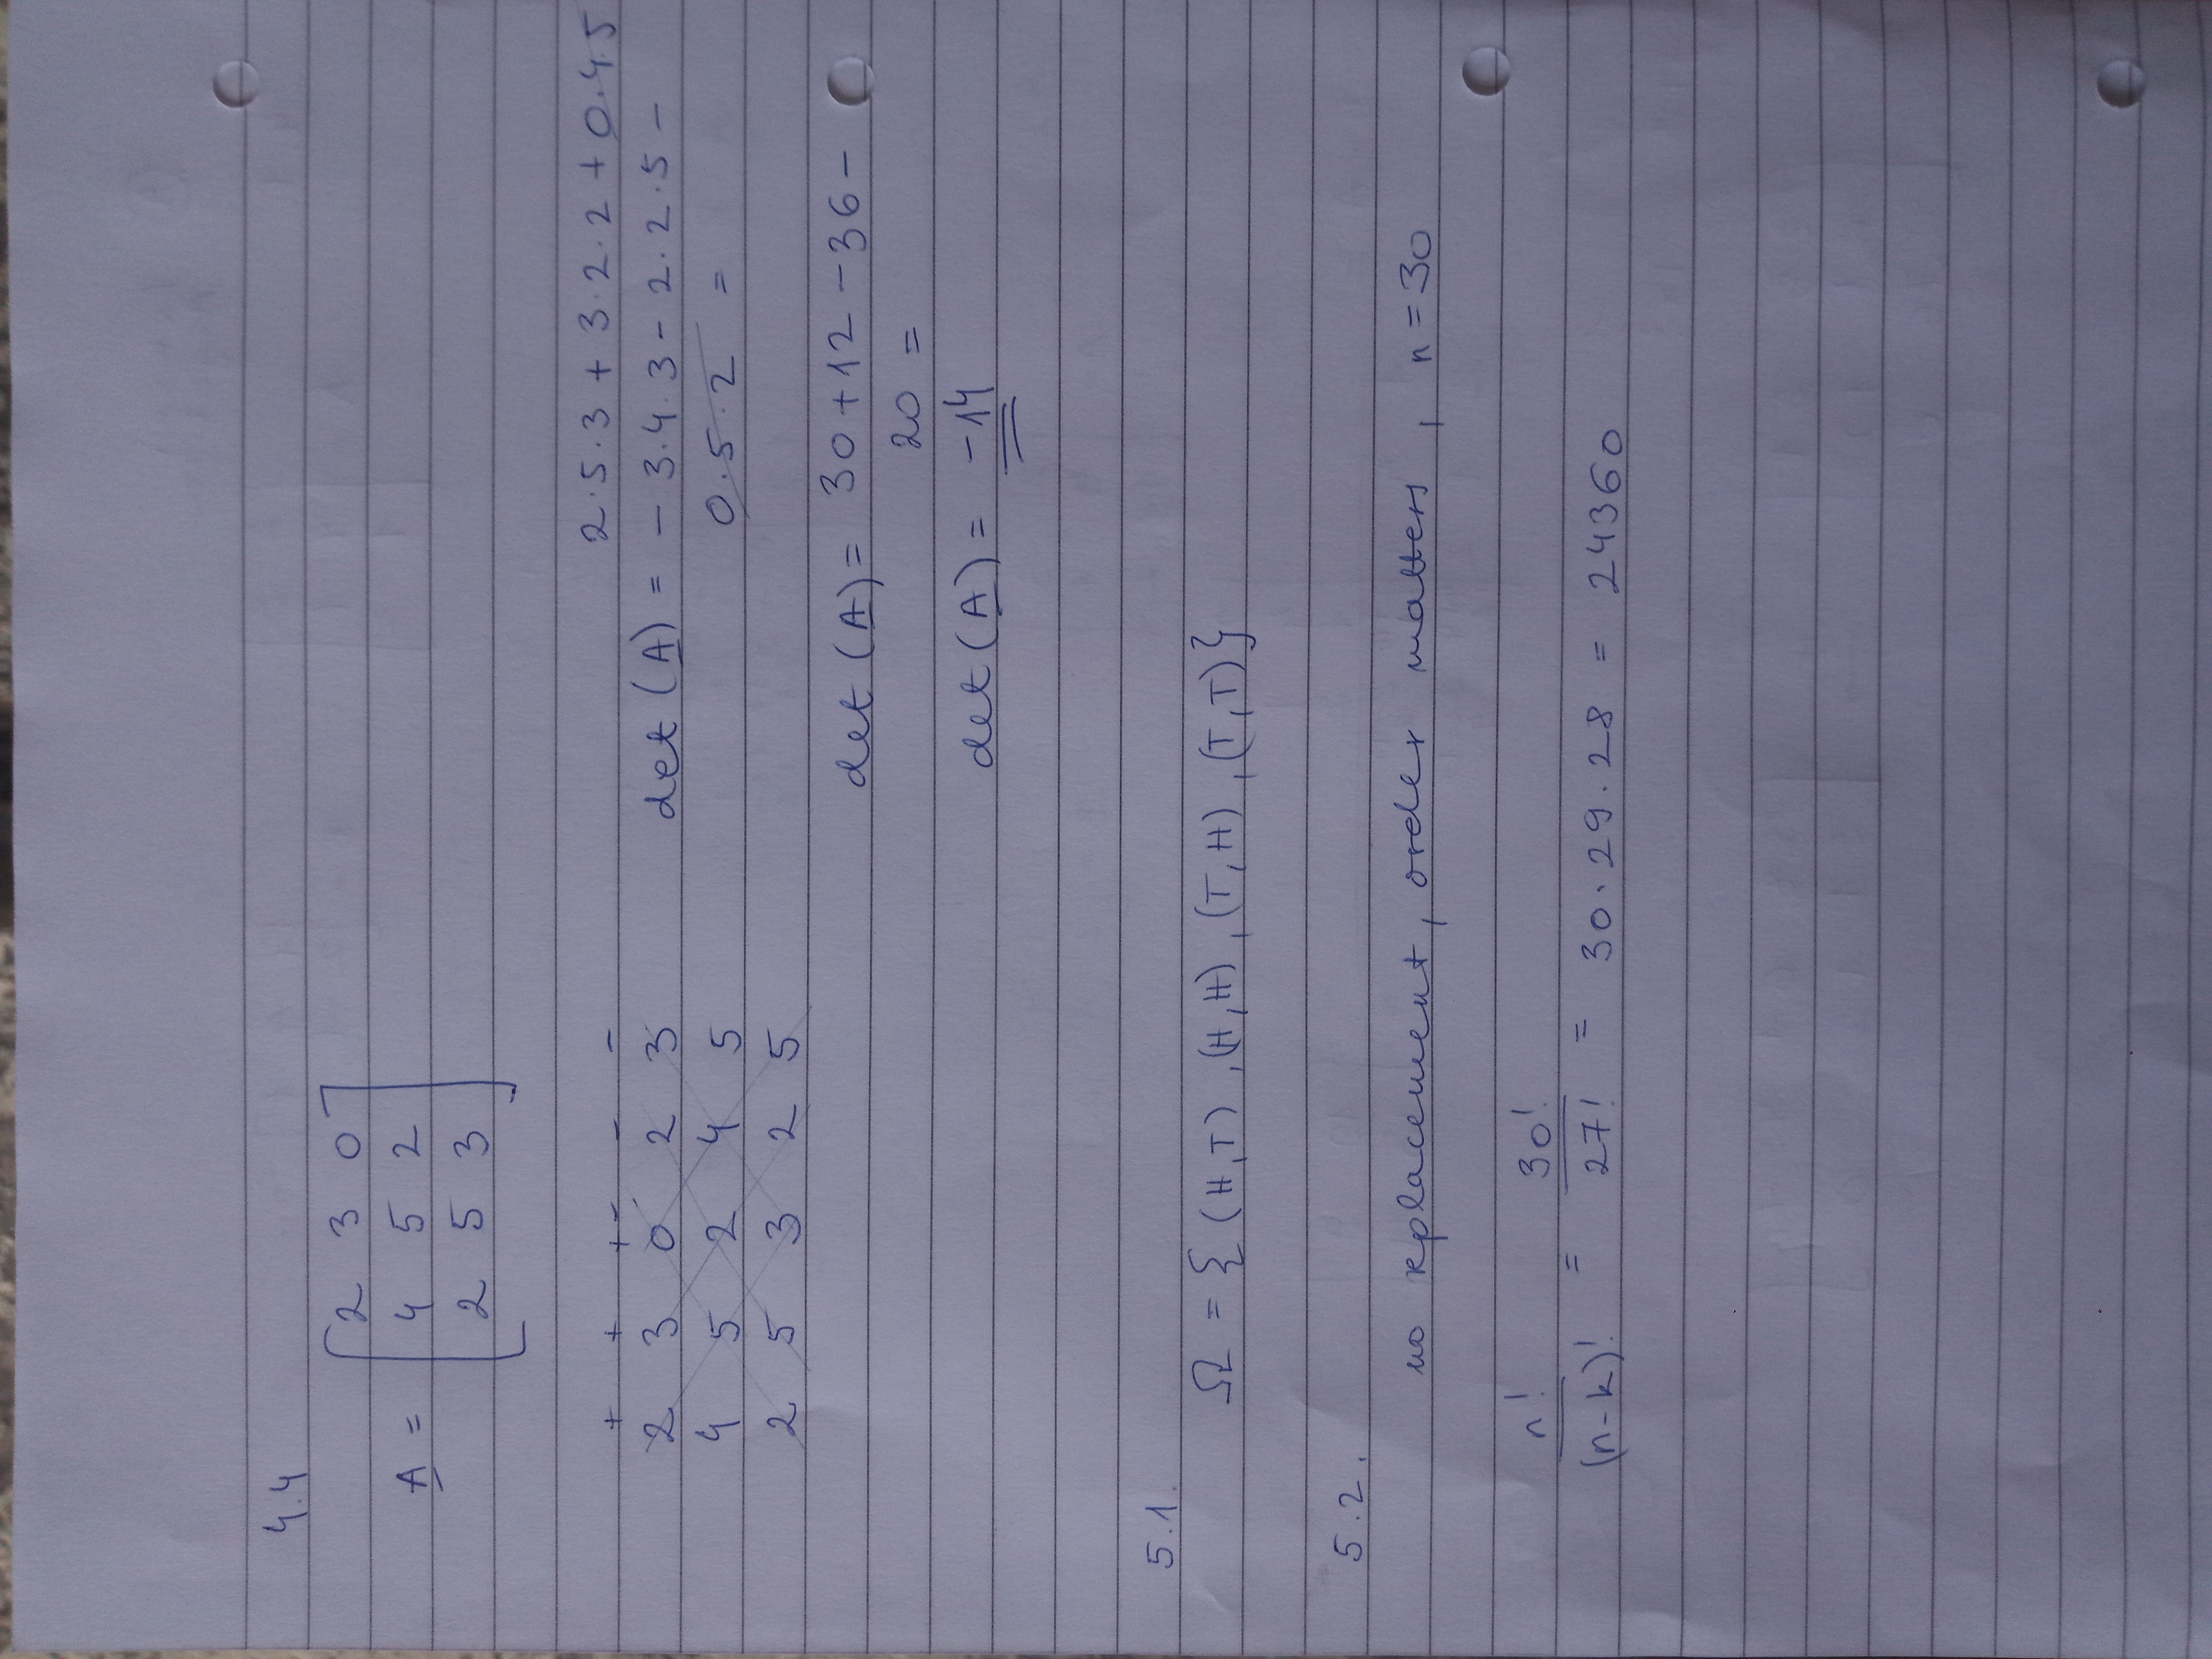 4.4
A = [ 2 3 0
4 5 2
2 5 3 ]
+ + + - - -
2 3 0 2 3
4 5 2 4 5
2 5 3 2 5
2·5·3 + 3·2·2 + 0·4·5
det (A) = - 3·4·3 - 2·2·5 -
0·5·2 =
det (A) = 30 + 12 - 36 -
20 =
det (A) = -14
5.1.
Ω = { (H,T) , (H,H) , (T,H) , (T,T) }
5.2.
no replacement, order matters, n = 30
n! / (n-k)! = 30! / 27! = 30·29·28 = 24360